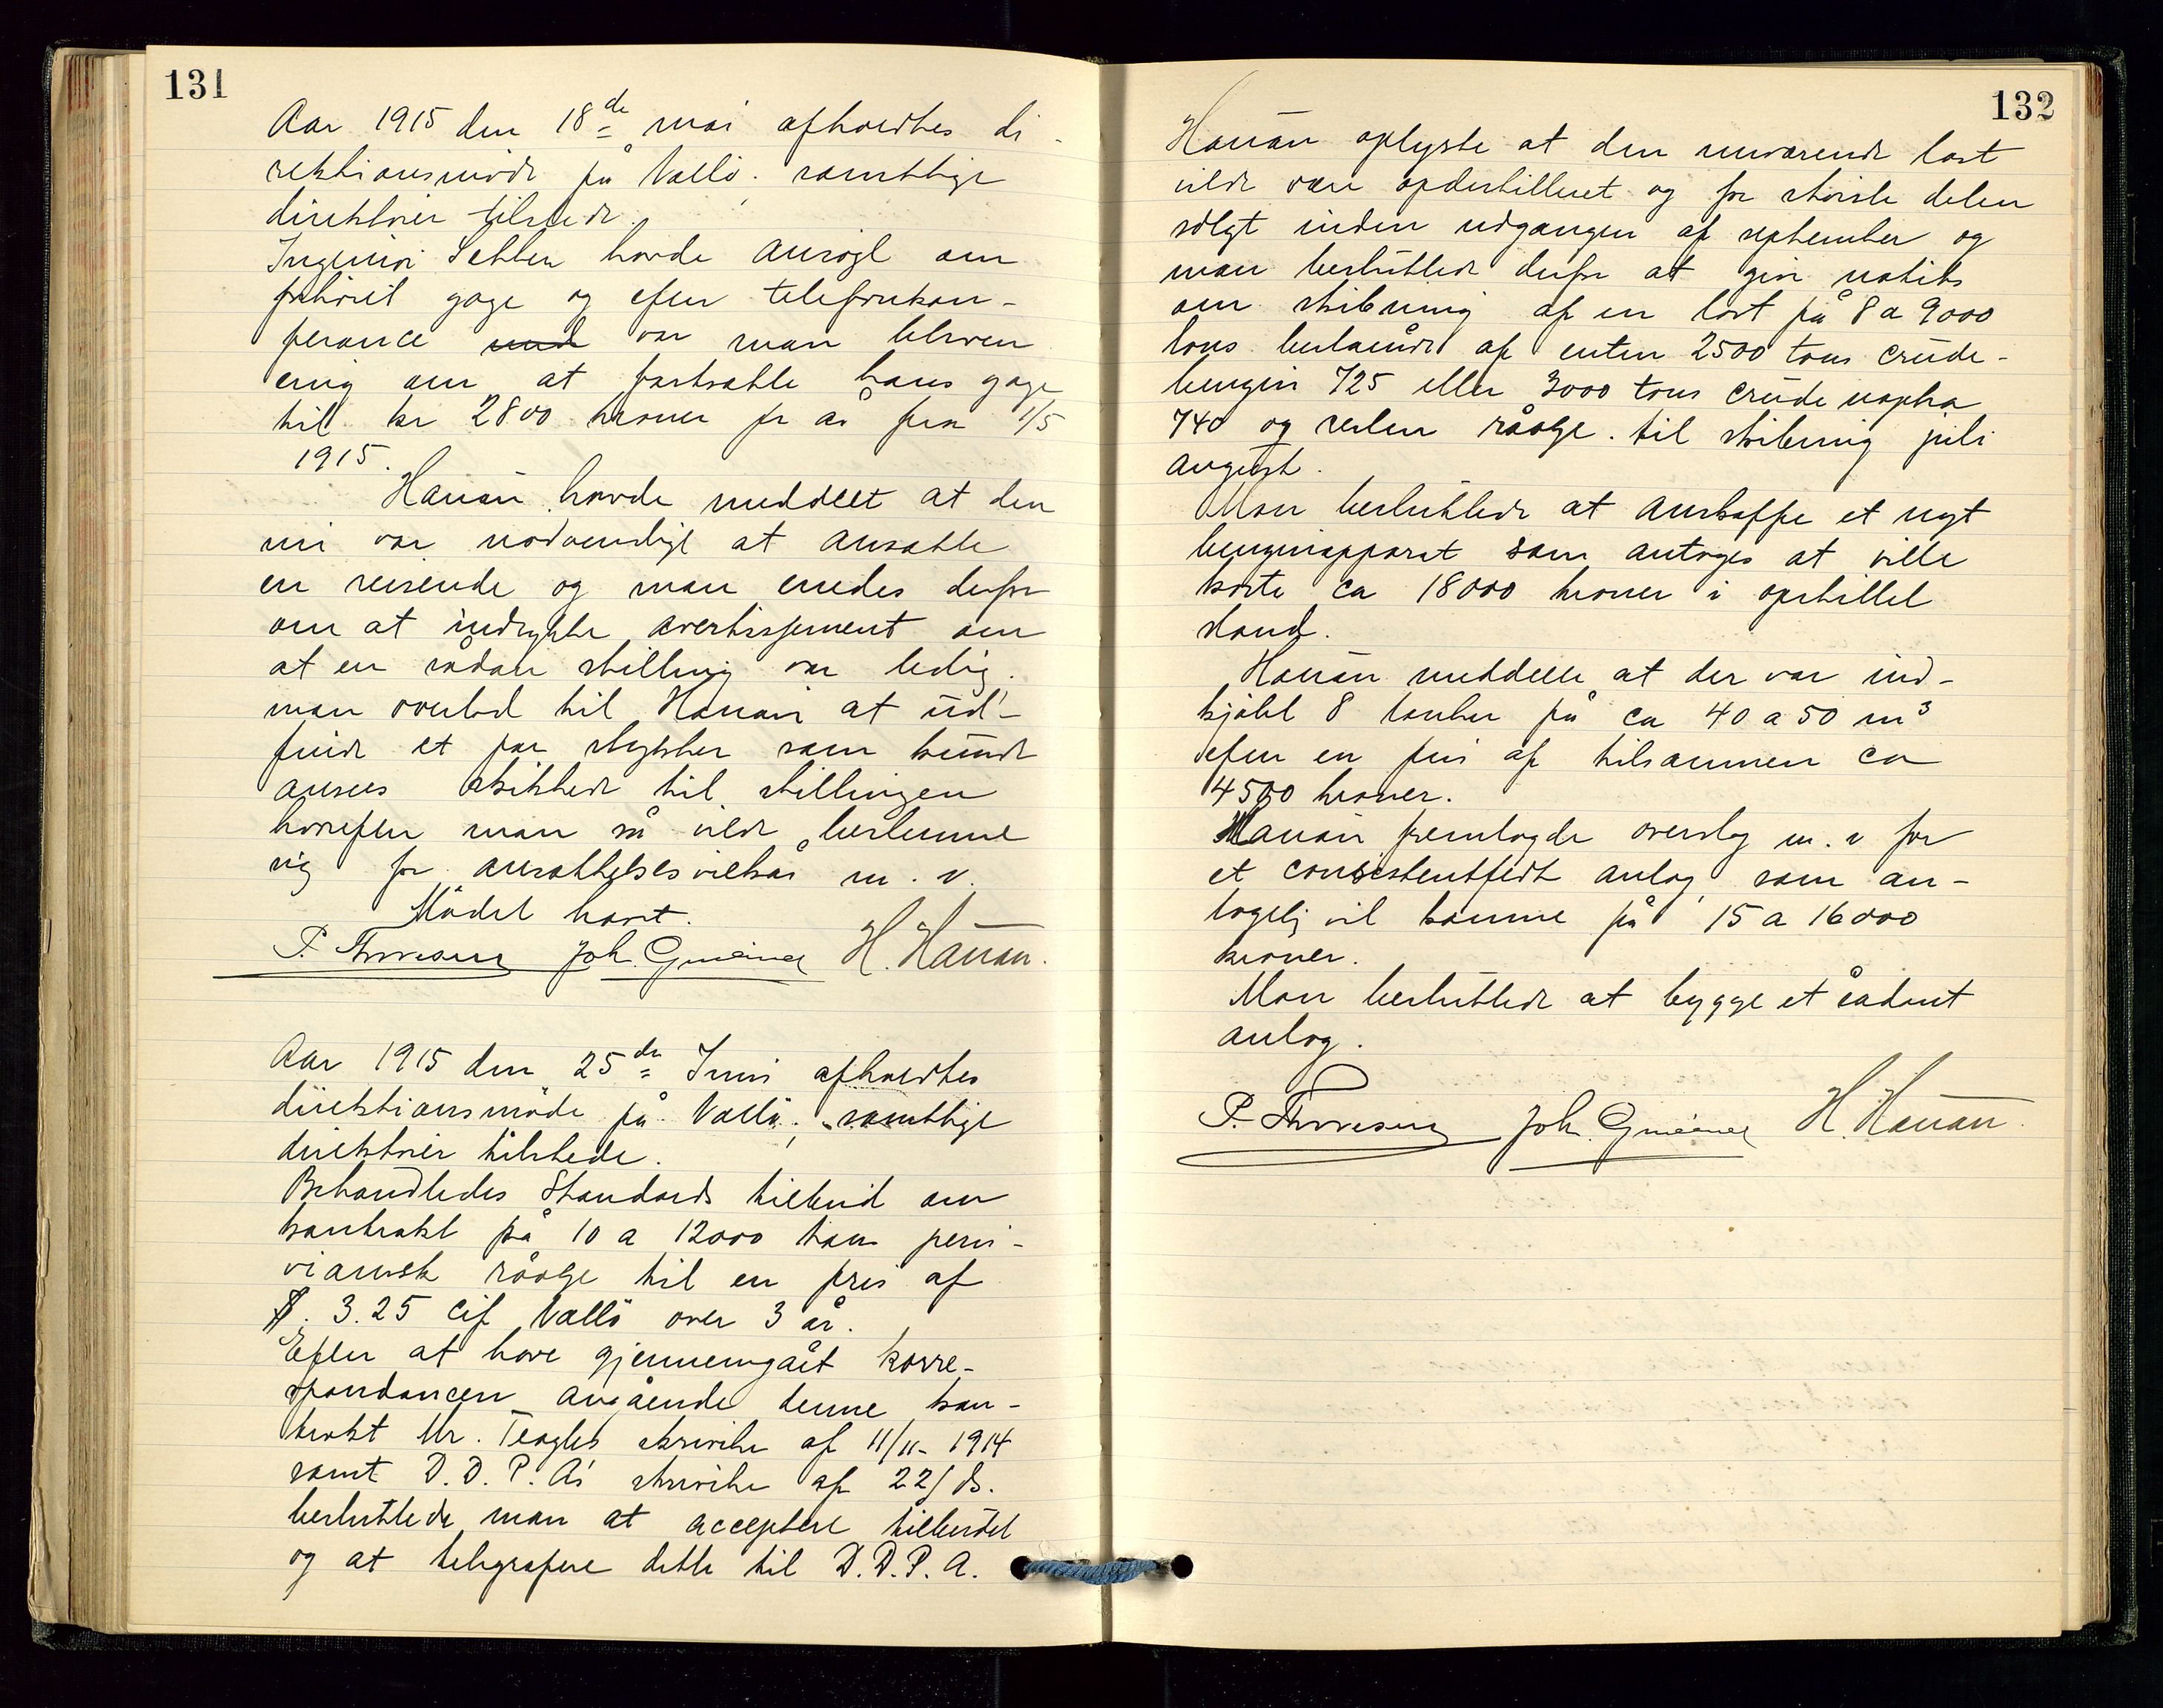 131
Aar 1915 den 18de mai afholdtes di-
rektionsmöde på Vallö. samtlige
direktörer tilstede.
Ingeniör Sebber havde ansögt om
forhöiet gage og efter telefonkon-
ferance med var man bleven
enig om at fastsætte hans gage
til kr 2800 kroner pr år fra 1/5
1915.
Hauan havde meddelt at den
nu var nödvendigt at ansætte
en reisende og man enedes derfor
om at indrykke avertissement om
at en sådan stilling var ledig.
man overlod til Hauan at ud-
finde et par stykker som kunde
ansees skikkede til stillingen
hvorefter man så vilde bestemme
sig for ansættelsesvilkår m. v.
Mödet hævt.
P. Thoresen Joh. H. Hauan.
Aar 1915 den 25de Juni afholdtes
direktionsmöde på Vallö, samtlige
direktörer tilstede.
Behandledes Standards tilbud om
kontrakt på 10 a 12000 tons peru-
viansk råolje til en pris af
$. 3.25 cif Vallö over 3 år.
Efter at have gjennemgået korre-
spondancen angående denne kon-
trakt Mr. Teagles skrivelse af 11/11- 1914
samt D. D. P. A's skrivelse af 22/ ds.
besluttede man at acceptere tilbudet
og at telegrafere dette til D.D.P.A.
132
Hauan oplyste at den nuværende last
vilde være opdestilleret og for störste delen
solgt inden udgangen af september og
man besluttede derfor at give notits
om skibning af en last på 8 a 9000
tons bestående af enten 2500 tons crude-
benzin 725 eller 3000 tons crude naphta
740 og resten råolje. til skibning juli
august.
Man besluttede at anskaffe et nyt
benzinapparat som antages at ville
koste ca 18000 kroner i opstillet
stand.
Hauan meddelte at der var ind-
kjöbt 8 tanker på ca 40 a 50 m3
efter en pris af tilsammen ca
4500 kroner.
Hauan fremlagde overslag m. v for
et consistentfedt anlæg, som an-
tagelig vil komme på 15 a 16000
kroner.
Man besluttede at bygge et sådant
anlæg.
P. Thoresen Joh. H. Hauan.